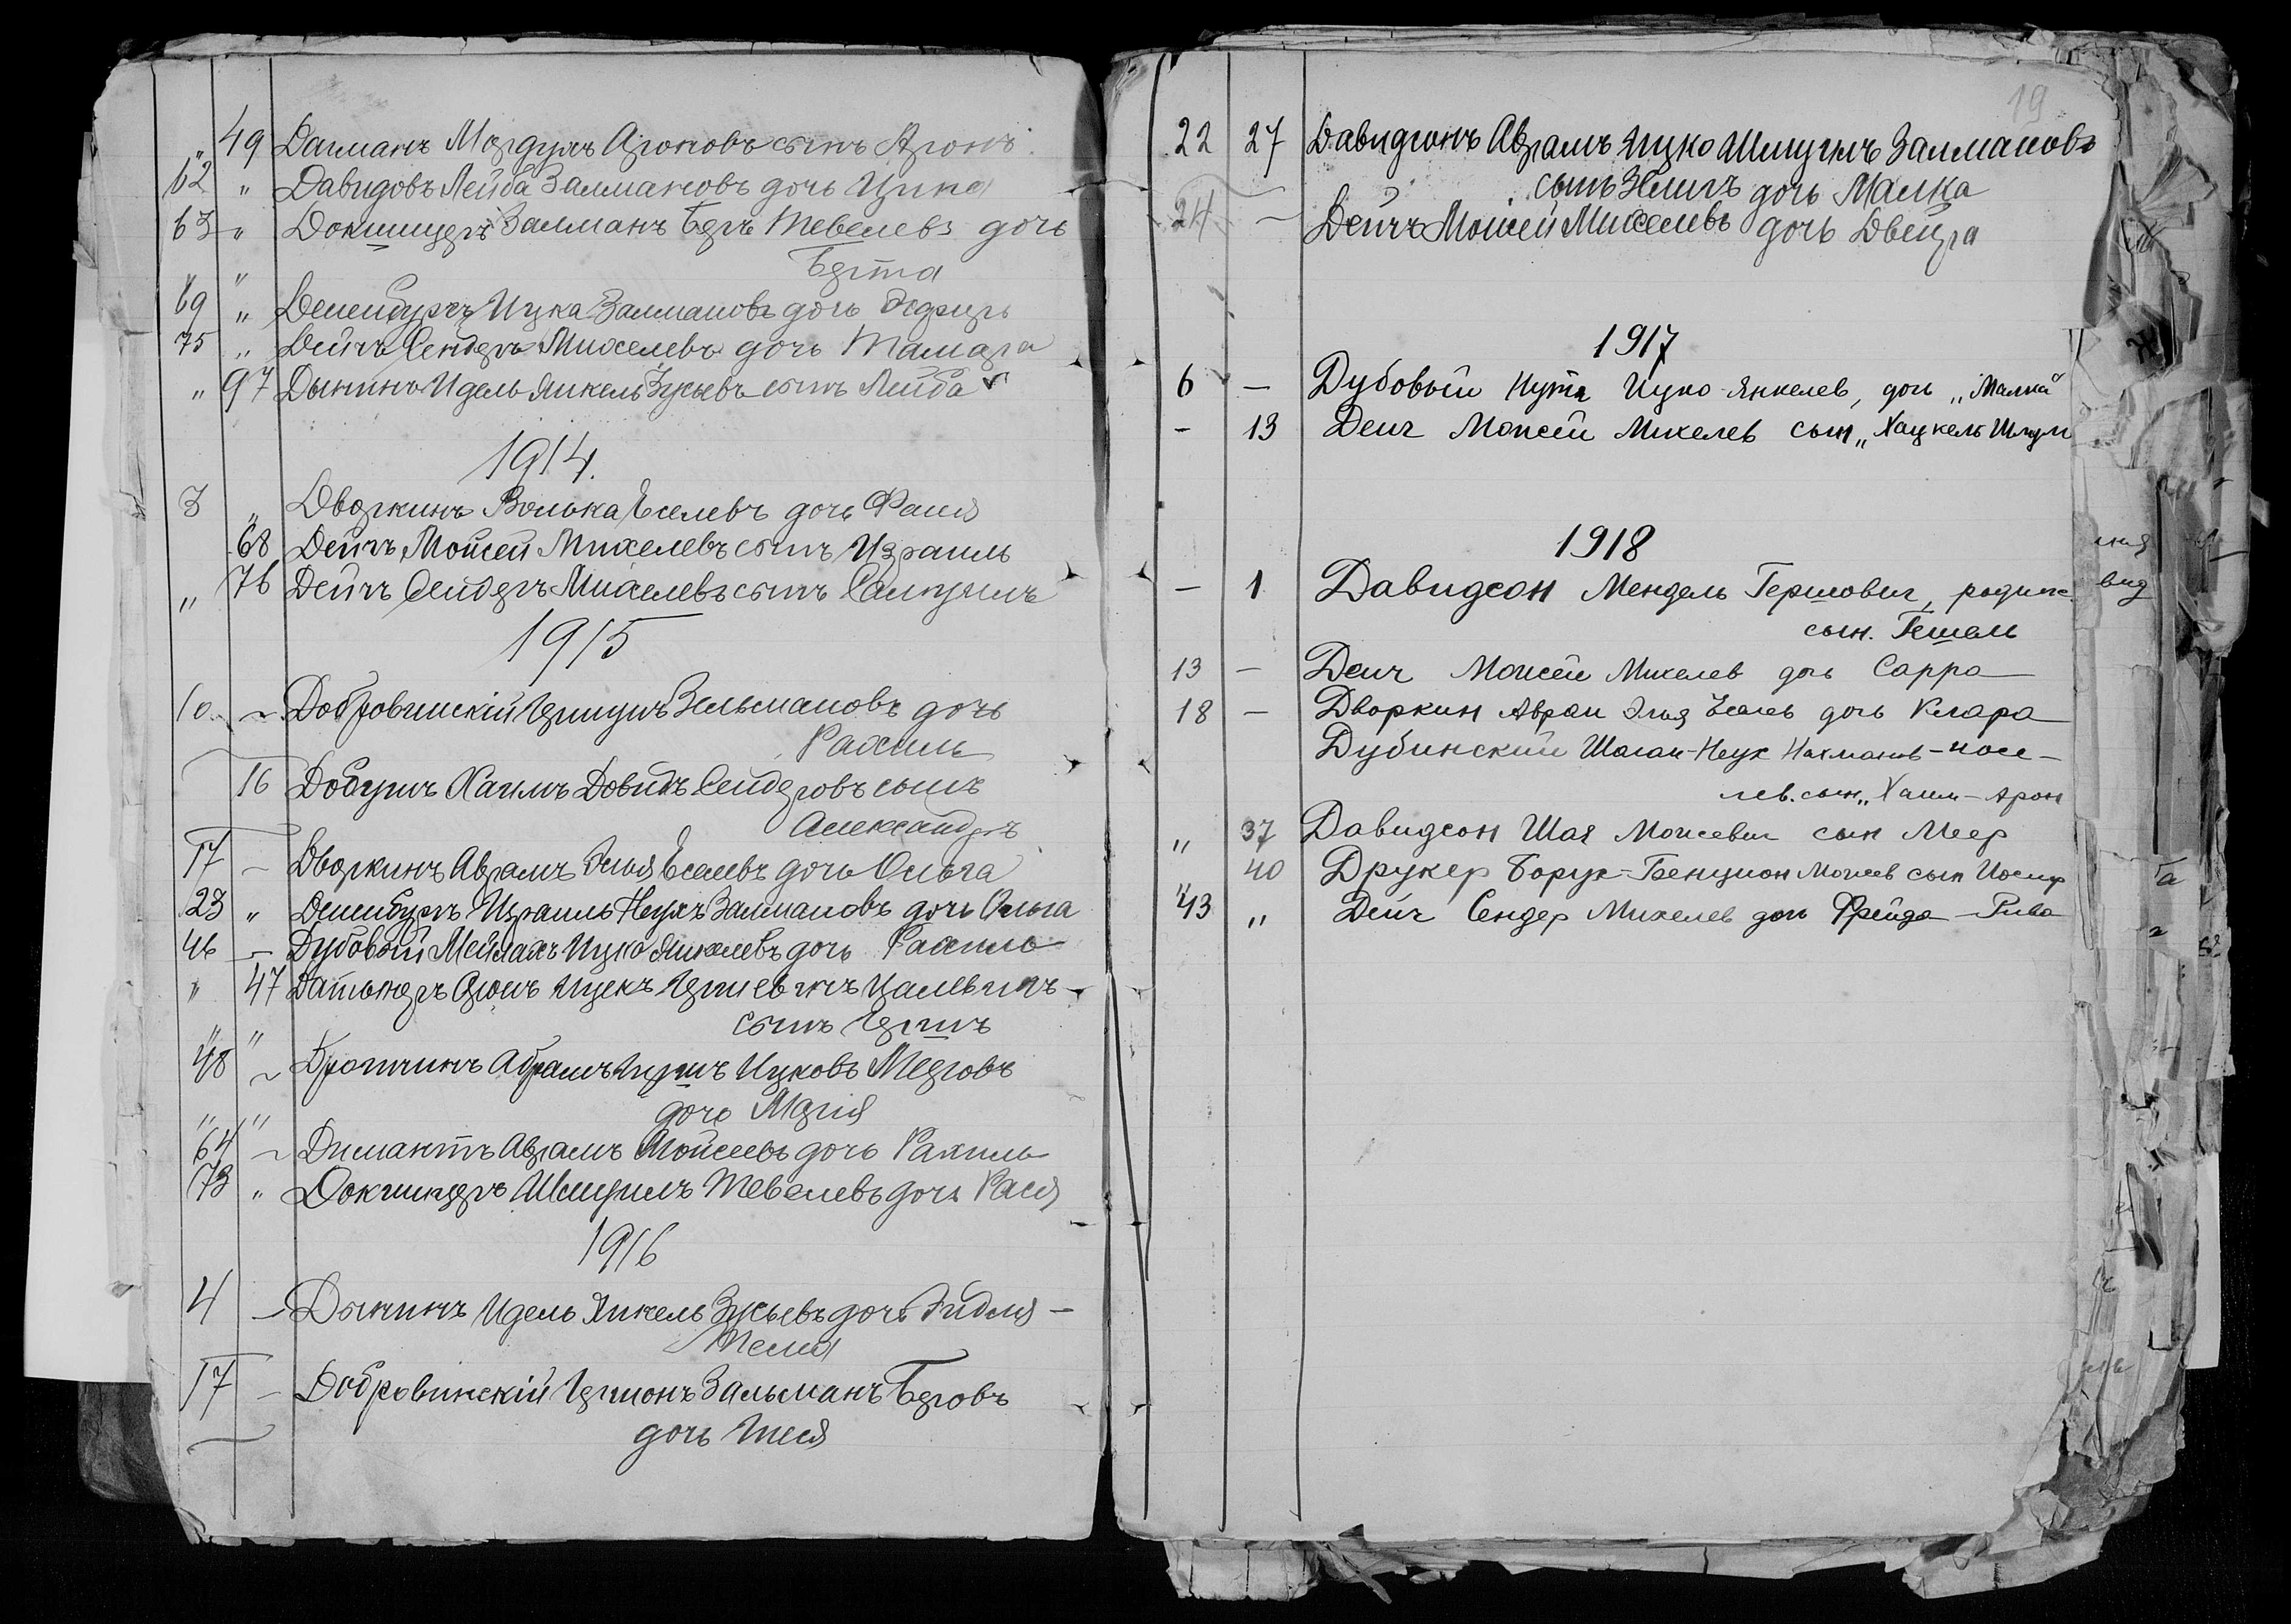 " 49 Дагманъ Мордухъ Ароновъ сынъ Аронъ
62 " Давидовъ Лейба Залмановъ дочь Ципа
63 " Докшицеръ Залманъ Беръ Тевелевъ дочь
" Берта
69 " Дененбургъ Ицка Залмановъ дочь Эсфирь
75 " Дейчъ Сендеръ Михелевъ дочь Тамара
" 97 Дынинъ Идель Янкель Зусьевъ сынъ Лейба
1914.
3 " Дворкинъ Волька Еселевъ дочь Фаня
68 Дейчъ Мойсей Михелевъ сынъ Израиль
" 76 Дейчъ Сендеръ Михелевъ сынъ Самуилъ
1915
10 - Добровинскій Зельмановъ дочь
Рахиль
16 Хаимъ Довидъ Сендеровъ сынъ
Александръ
17 - Дворкинъ Аврамъ Элья Еселевъ дочь Ольга
23 " Дененбургъ Израиль Неухъ Залмановъ дочь Ольга
46 - Дубовый Мейлахъ Ицко Янкелевъ дочь Рахиль
" 47 Аронъ Ицекъ -
сынъ Гершъ
48 - Абрамъ Ицковъ Меровъ
" " дочь Марія
64 - Димантъ Аврамъ Мойсеевъ дочь Рахиль
73 " Докшицеръ Шмуилъ Тевелевъ дочь Рася
1916
4 - Дынинъ Идель Янкель Зусьевъ дочь -
17 - Добровинскій Зальманъ Беровъ
дочь
19
22 27 Давидсонъ Аврамъ Ицко Шмуилъ Залмановъ
сынъ Зеликъ дочь Малка
24 - Дейчъ Мойсей Михелевъ дочь Двейра
1917
6 - Дубовый Нута Ицко-Янкелев, дочь „Малка"
- 13 Деич Моисей Михелев сын „Хацкель Шмул
1918
- 1 Давидсон Мендель Гершович, родил.
сын. Гешель
13 - Деич Моисей Михелев дочь Сарра
18 - Дворкин Аврам Элья Еселев дочь Клара
Дубинский Нахманов-Иосе-
лев. сын „Хаим-Арон
" 37 Давидсон Шая Моисеевич сын Меер
40 Друкер Борух-Бенцион Моисеев сын Иосиф
43 " Дейч Сендер Михелев дочь Фрейда-Рива